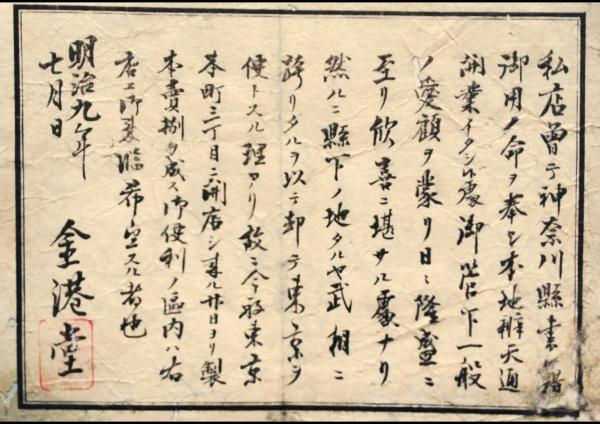 私店曽テ神奈川縣書籍
御用ノ命ヲ奉シ本地辨天通
開業イタシ候處御管下一般
ノ愛顧ヲ蒙リ日ニ隆盛ニ
至リ欣喜ニ堪サル處ナリ
然ルニ縣下ノ地タルヤ武相ニ
跨リタルヲ以テ却テ東京ヲ
便トスル理アリ故ニ今般東京
本町三丁目ニ開店シ来ル廿日ヨリ製
本賣捌ヲ成ス御便利ノ區内ハ右
店エ御来臨希望スル者也
明治九年
七月日
金港堂